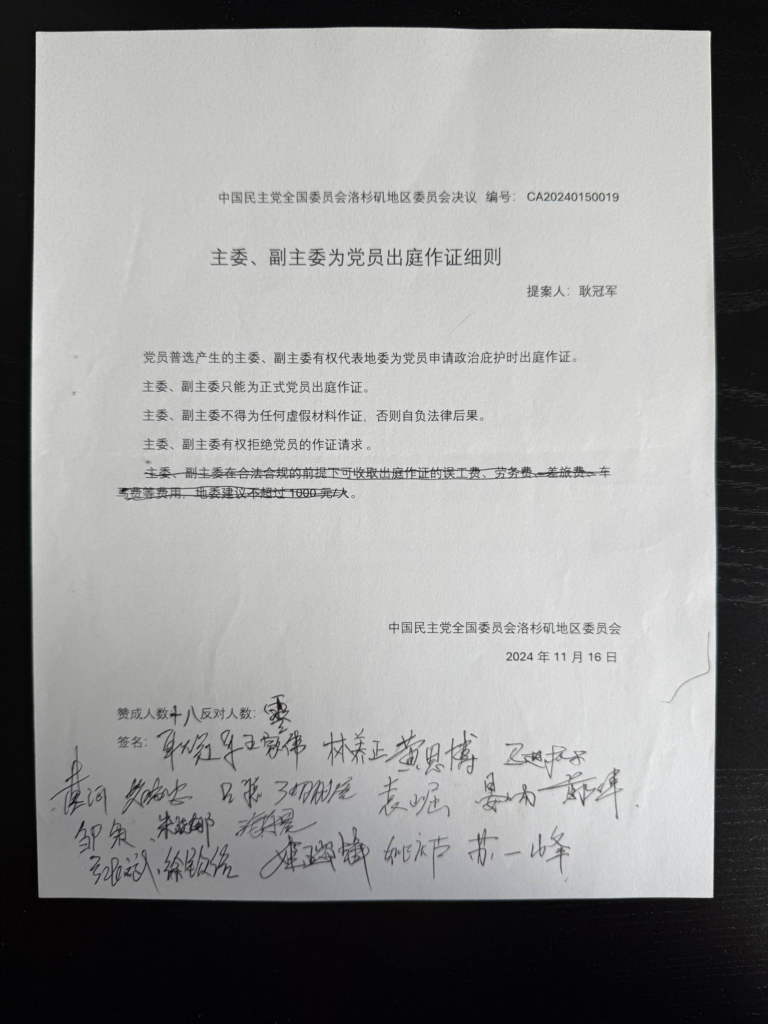 中国民主党全国委员会洛杉矶地区委员会决议 编号: CA20240150019
主委、副主委为党员出庭作证细则
提案人: 耿冠军
党员普选产生的主委、副主委有权代表地委为党员申请政治庇护时出庭作证。
主委、副主委只能为正式党员出庭作证。
主委、副主委不得为任何虚假材料作证, 否则自负法律后果。
主委、副主委有权拒绝党员的作证请求。
主委、副主委在合法合规的前提下可收取出庭作证的误工费、劳务费、差旅费、车
马费等费用, 地委建议不超过 1000 元/人。
中国民主党全国委员会洛杉矶地区委员会
2024 年 11 月 16 日
赞成人数十八反对人数: 零
签名: 耿冠军 林养正 黄思博
黄河 袁崛
邹 朱
徐 苏一峰